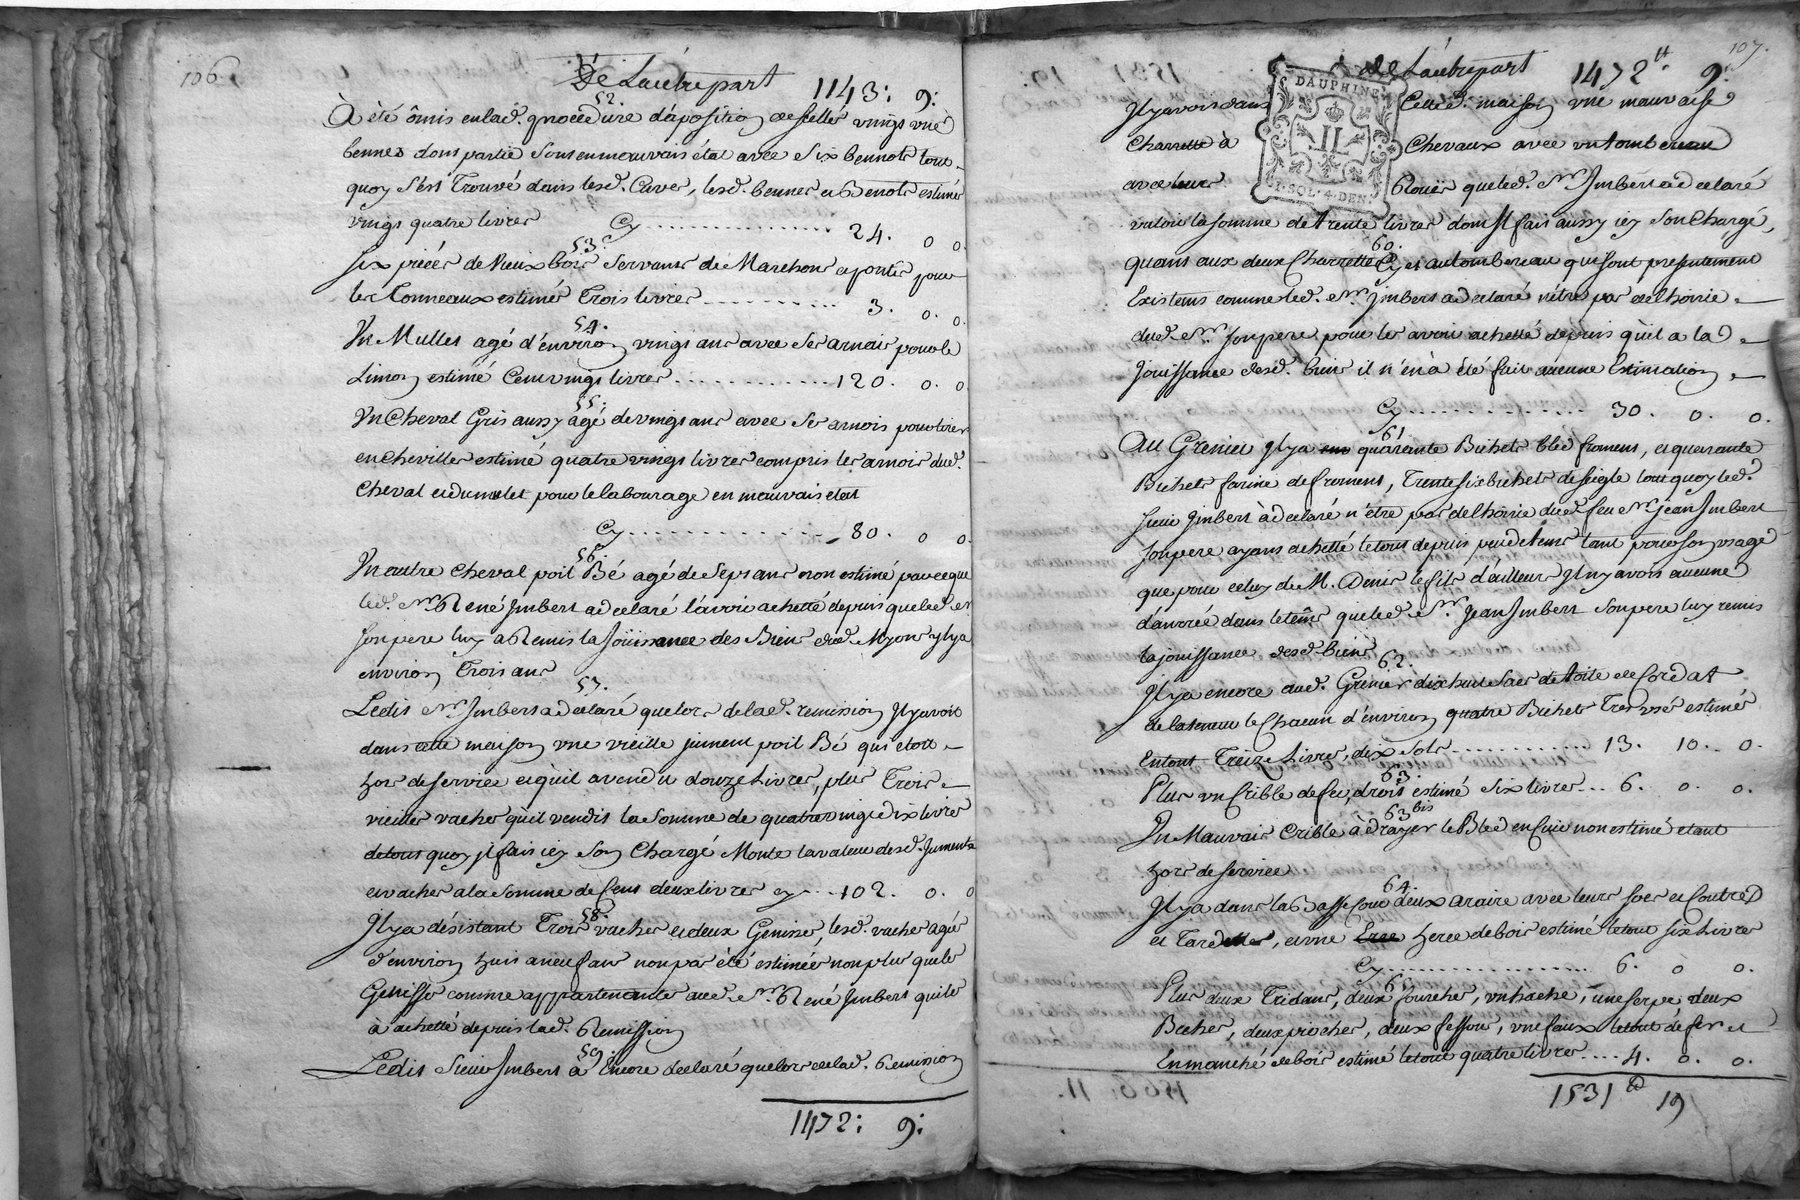 106
De Lautrepart 1143: 9:
52.
À été ômis en lad. procedure d'aposition de scellés vingt une
bennes dont partie sont en mauvais état avec six bennots tout
quoy s'est trouvé dans lesd. Caves, lesd. bennes et Benots estimés
vingt quatre livres Cy 24. 0 0.
53.
six pièces de vieux bois servants de Marchons et ponts pour
les Tonneaux estimés Trois livres 3. 0. 0.
54.
Un Mullet agé d'environ vingt ans avec ses arnois pour le
Limon estimé Cent vingt livres 120. 0. 0
55.
Un Cheval Gris aussy agé de vingt ans avec ses arnois pour tirer
en cheville estimé quatre vingt livres compris les arnois dud.
Cheval et du mulet pour le labourage en mauvais état
Cy 80. 0 0.
56.
Un autre cheval poil Bé agé de sept ans non estimé parce que
led. Sr. René Imbert a declaré l'avoir achetté depuis que led. Sr
son pere luy a Remis la Joüissance des Biens dud. Myons il y a
environ Trois ans
57.
Ledit Sr. Imbert a declaré que lors de lad. remission Il y avoit
dans cette maison une vieille jument poil Bé qui étoit
hors de service et qu'il a vendu douze Livres, plus Trois
vieilles vaches qu'il vendit la somme de quatre vingt dix livres
de tout quoy il fait icy son Chargé Monte la valeur desd. Juments
et vaches a la somme de Cent deux livres cy 102. 0. 0
58.
Il y a désistant Trois vaches et deux Genisses, lesd. vaches agés
d'environ huit a neuf ans non pas été estimées non plus que les
Genisses comme appartenantes aud. Sr. René Imbert qui les
à achetté depuis lad. Remission
59.
Ledit Sieur Imbert a Encore declaré que lors de lad. Remission
1472: 9:
107.
De Lautrepart 1472 tt. 9.
DAUPHINÉ
1. SOL. 4. DEN.
Il y avoit dans Cette d. maison une mauvaise
Charrette à Chevaux avec un tombereau
avec leurs Roües que led. Sr. Imbert a declaré
valoir la somme de trente livres dont Il fait aussy icy son Chargé,
60.
quant aux deux Charrettes Cy et au tombereau qui sont presentement
Existans comme led. Sr. Imbert a declaré n'être pas de l'hoirie
dud. Sr. son pere pour les avoir achetté depuis qu'il a la
Jouissance desd. biens il n'en à été fait aucune Estimation
Cy 30. 0. 0.
61
Au Grenier Il y a quarante Bichets bled froment, et quarante
Bichets farine de froment, Trente six bichets de seigle tout quoy led.
sieur Imbert à declaré n'être pas de l'hoirie dud. feu Sr. Jean Imbert
son pere ayant achetté le tout depuis peu de tems tant pour son usage
que pour celuy de M. Denis le fils d'ailleurs Il n'y avoit aucune
danrée dans le tems que led. Sr. Jean Imbert son pere luy remis
la jouissance desd. biens
62.
Il y a encore aud. Grenier dix huit sacs de toile de Cordat
de la teneur le Chacun d'environ quatre Bichets Tres usés estimés
En tout Treize Livres, dix sols 13. 10. 0.
63.
Plus un Crible de fer, droit estimé six livres 6. 0. 0.
63 bis
Un Mauvais Crible à drayer le Bled en Cuir non estimé etant
hors de service
64.
Il y a dans la Basse Cour deux araire avec leurs socs et Coutred
et Tardettes, et une herce de bois estimé le tout six Livres
Cy 6. 0 0.
65
Plus deux Tridans, deux fourches, un hache, une serpe deux
Biches, deux pioches, deux fessous, une faux le tout de fer et
En manché de bois estimé le tout quatre livres 4. 0. 0.
1531 tt 19